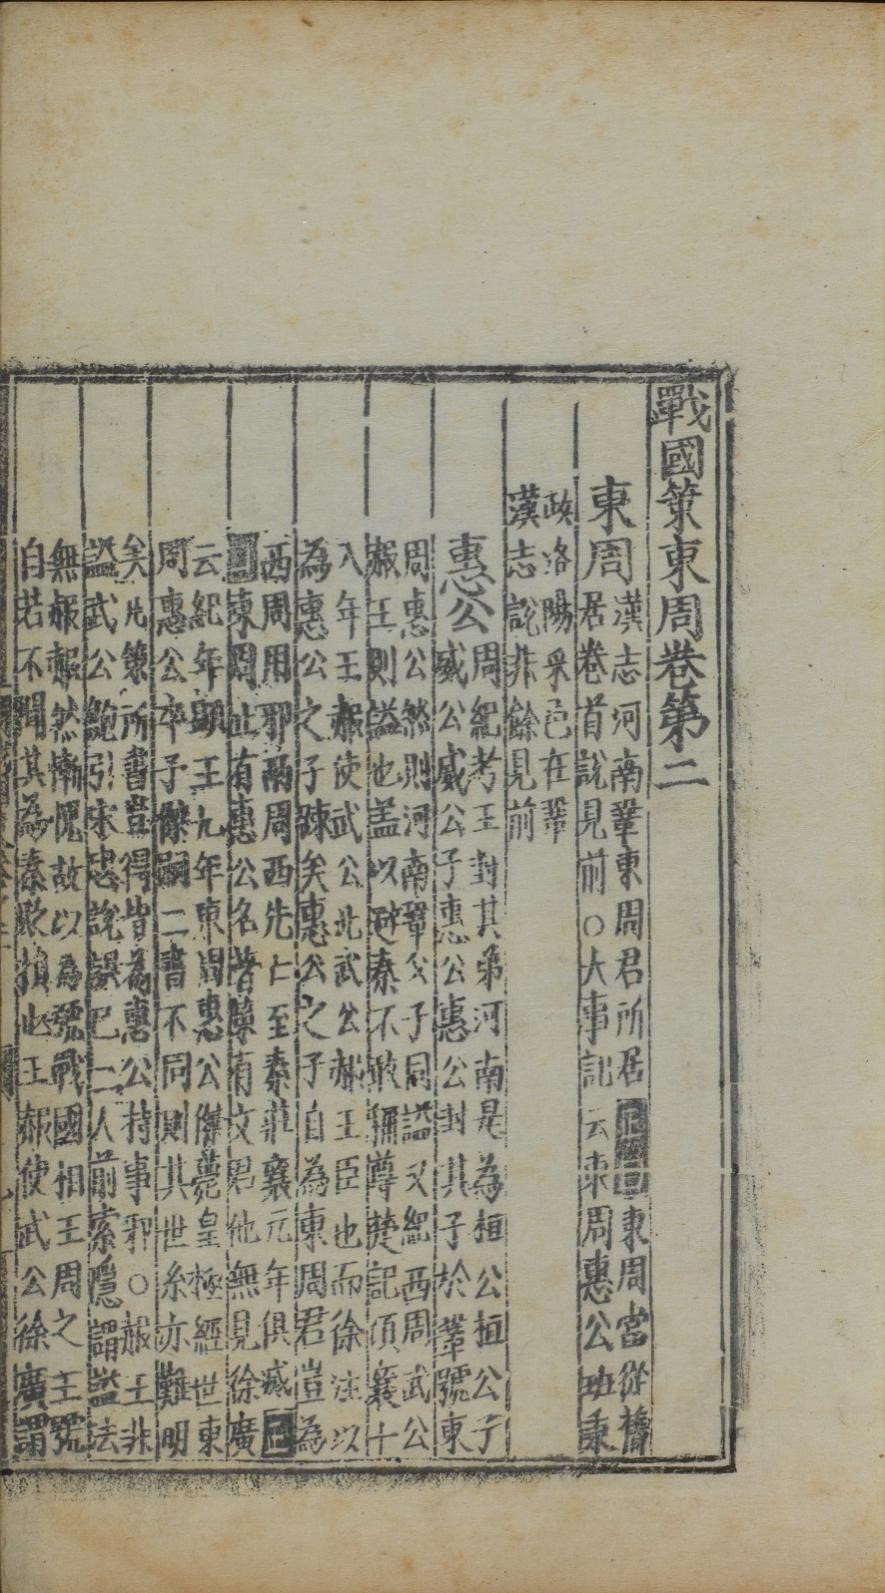 戰國策東周卷第二
東周
漢志河南鞏東周君所居東周當從舊
居卷首說見前○大事記云東周惠公班秉
政洛陽采邑在鞏
漢志說非餘見前
惠公
周紀考王封其弟河南是為桓公桓公子
威公威公子惠公惠公封其子於鞏號東
周惠公然則河南鞏父子同謚又紀西周武公
赧王則謚也蓋以避秦不敢稱尊楚記頃襄十
八年王赧使武公此武公赧王臣也而徐注以
為惠公之子疎矣惠公之子自為東周君豈為
西周用邪兩周西先亡至秦莊襄元年俱滅
東周止有惠公名著策有文君他無見徐廣
云紀年顯王九年東周惠公傑薨皇極經世東
周惠公卒子傑嗣二書不同則其世系亦難明
矣凡策所書豈得皆為惠公持事邪○赧王非
謚武公鮑引宋忠說誤已二人前索隱謂謚法
無赧赧然慚愧故以為號戰國相王周之王號
自若不聞其為秦損也王赧使武公徐廣謂